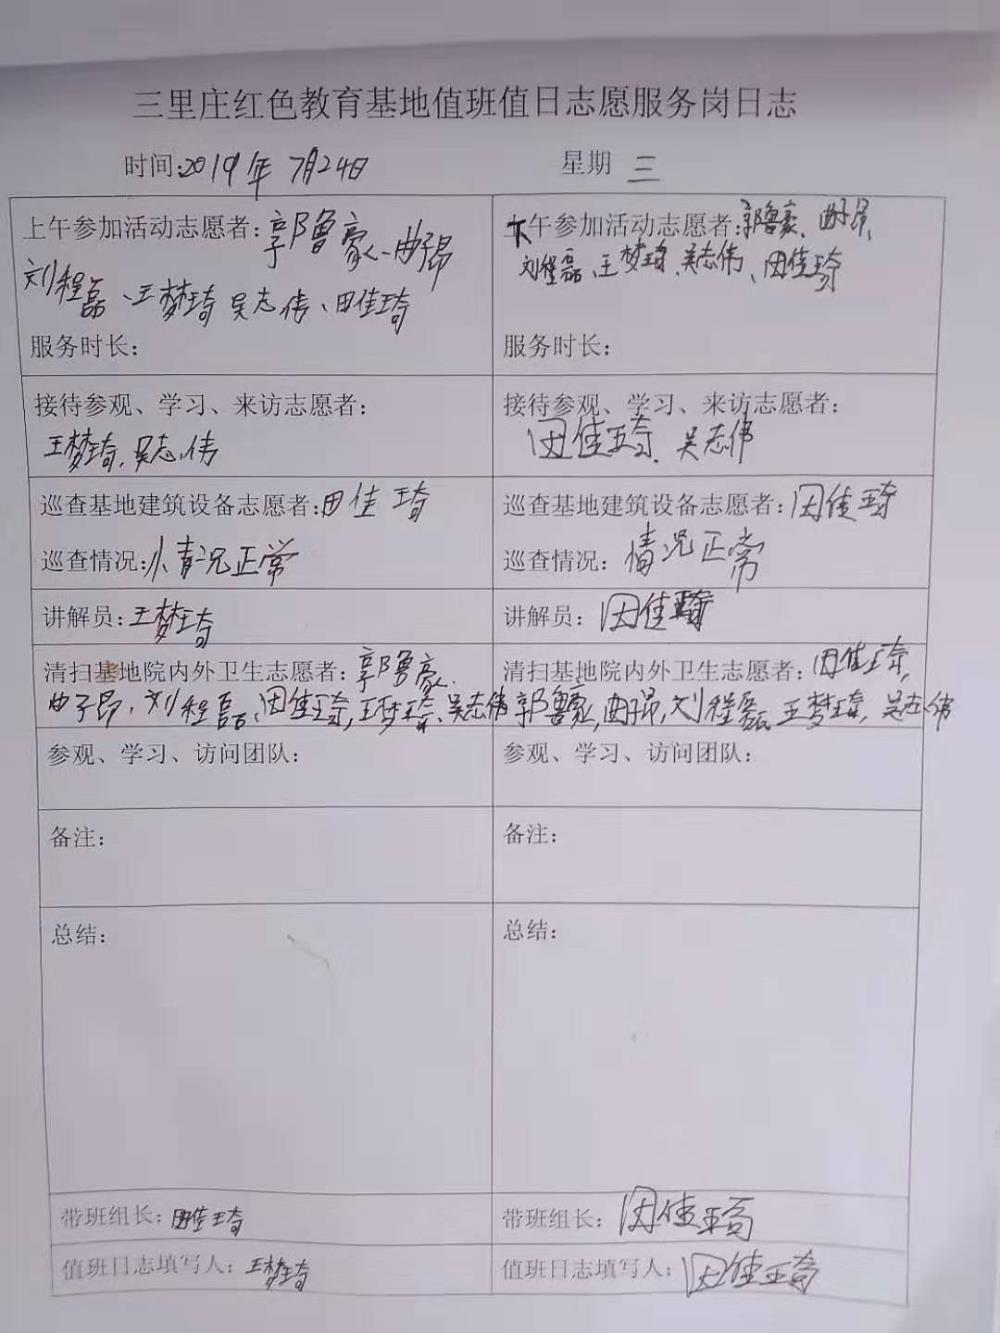 三里庄红色教育基地值班值日志愿服务岗日志
时间:2019年 7月24日 星期 三
上午参加活动志愿者:郭鲁豪、曲子昂
刘程磊、王梦琦 吴志伟、田佳琦
服务时长:
下午参加活动志愿者:郭鲁豪、曲子昂、
刘程磊、王梦琦、吴志伟、田佳琦
服务时长:
接待参观、学习、来访志愿者:
王梦琦,吴志伟
接待参观、学习、来访志愿者:
田佳琦、吴志伟
巡查基地建筑设备志愿者:田佳琦
巡查情况:情况正常
巡查基地建筑设备志愿者:田佳琦
巡查情况:情况正常
讲解员:王梦琦
讲解员:田佳琦
清扫基地院内外卫生志愿者:郭鲁豪、
曲子昂,刘程磊,田佳琦,王梦琦,吴志伟
清扫基地院内外卫生志愿者:田佳琦,
郭鲁豪,曲子昂,刘程磊,王梦琦,吴志伟
参观、学习、访问团队:
参观、学习、访问团队:
备注:
备注:
总结:
总结:
带班组长:田佳琦
带班组长:田佳琦
值班日志填写人:王梦琦
值班日志填写人:田佳琦